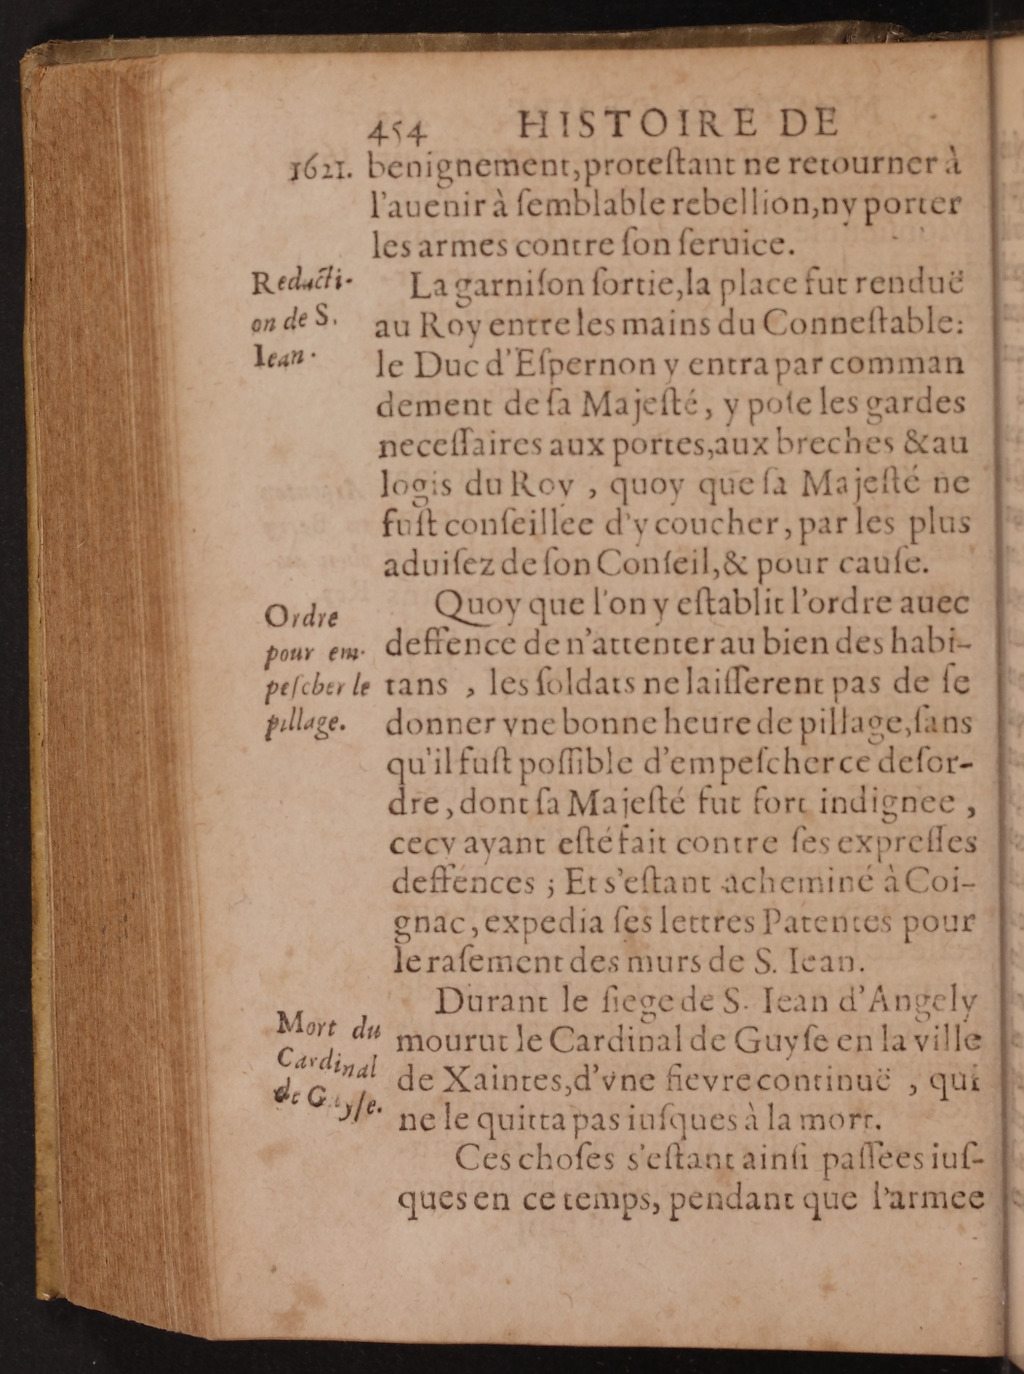 454 HISTOIRE DE
1621. benignement, proteſtant ne retourner à
l'auenir à ſemblable rebellion, ny porter
les armes contre ſon ſeruice.
Reducti-
on de S.
Iean.
La garniſon ſortie, la place fut renduë
au Roy entre les mains du Conneſtable:
le Duc d'Eſpernon y entra par comman
dement de ſa Majeſté, y poſe les gardes
neceſſaires aux portes, aux breches & au
logis du Roy, quoy que ſa Majeſté ne
fuſt conſeillee d'y coucher, par les plus
aduiſez de ſon Conſeil, & pour cauſe.
Ordre
pour em-
peſcher le
pillage.
Quoy que l'on y eſtablit l'ordre auec
deffence de n'attenter au bien des habi-
tans, les ſoldats ne laiſſerent pas de ſe
donner vne bonne heure de pillage, ſans
qu'il fuſt poſſible d'empeſcher ce deſor-
dre, dont ſa Majeſté fut fort indignee,
cecy ayant eſté fait contre ſes expreſſes
deffences; Et s'eſtant acheminé à Coi-
gnac, expedia ſes lettres Patentes pour
le raſement des murs de S. Iean.
Mort du
Cardinal
de Guyſe.
Durant le ſiege de S. Iean d'Angely
mourut le Cardinal de Guyſe en la ville
de Xaintes, d'vne fievre continuë, qui
ne le quitta pas iuſques à la mort.
Ces choſes s'eſtant ainſi paſſees iuſ-
ques en ce temps, pendant que l'armee